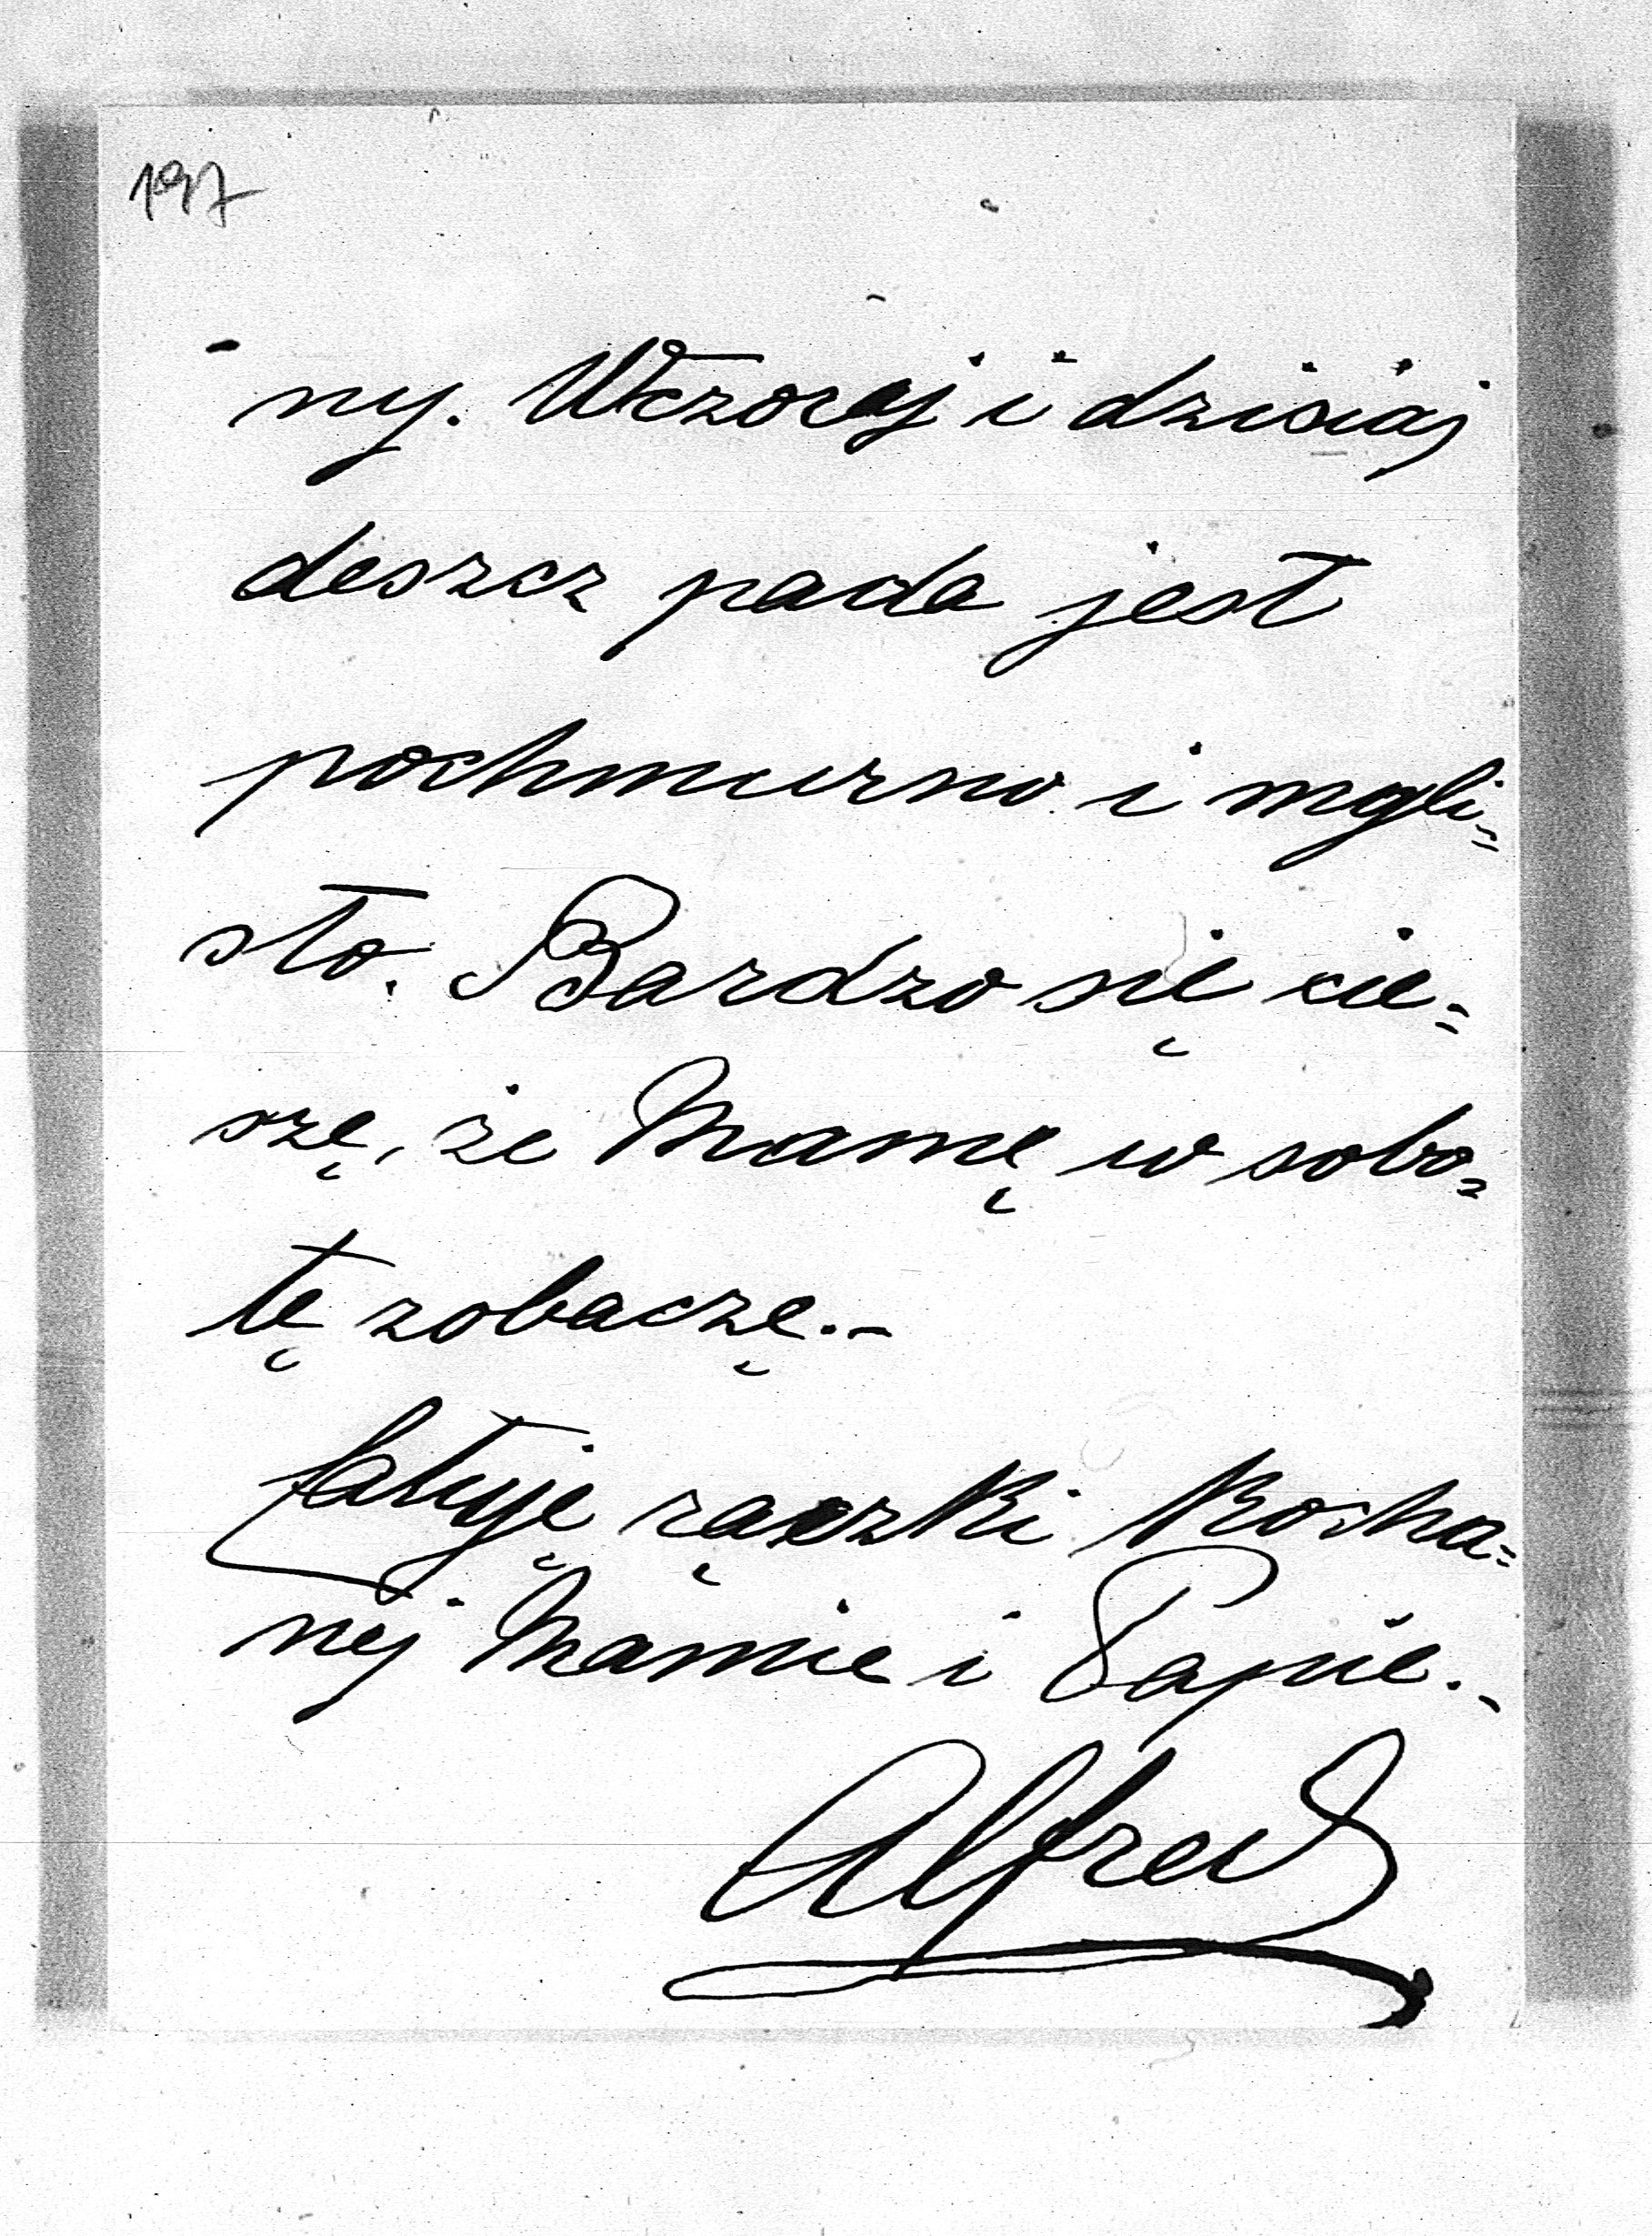 197
ny. Wczoraj i dzisiaj
deszcz pada jest
pochmurno i mgli=
sto. Bardzo się cie=
szę, że Mamę w sobo=
tę zobaczę.-
Całuję rączki Kocha=
nej Mamie i Papie.-
Alfred